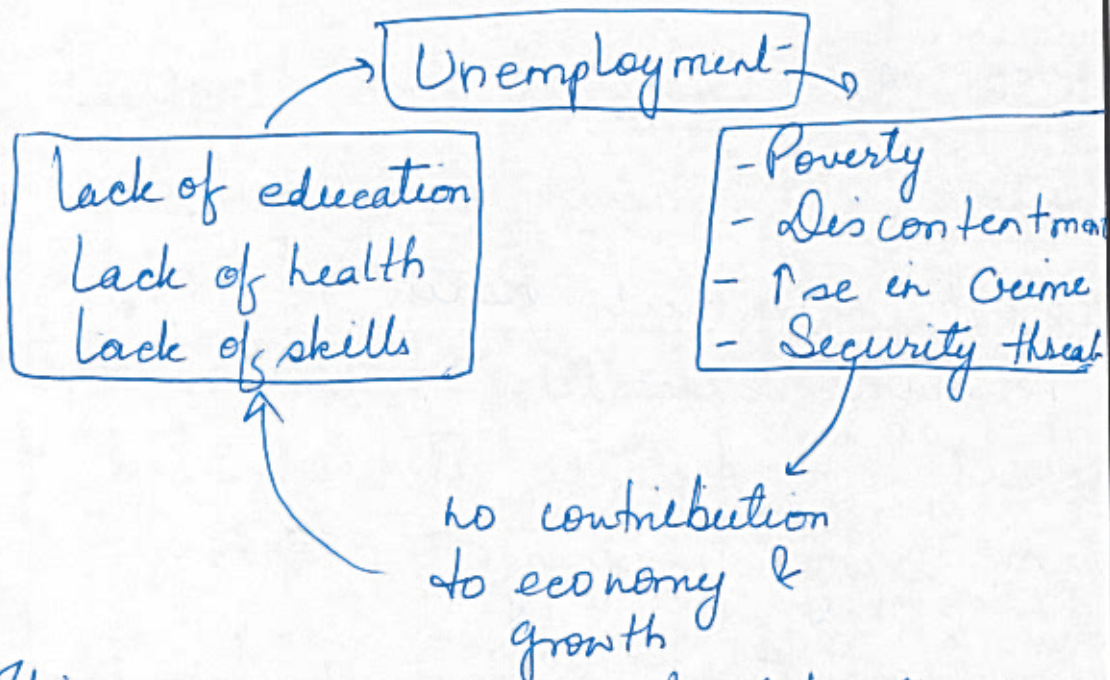 Unemployment
Lack of education
Lack of health
Lack of skills
- Poverty
- Discontentment
- ↑se in Crime
- Security threat
no contribution
to economy &
growth